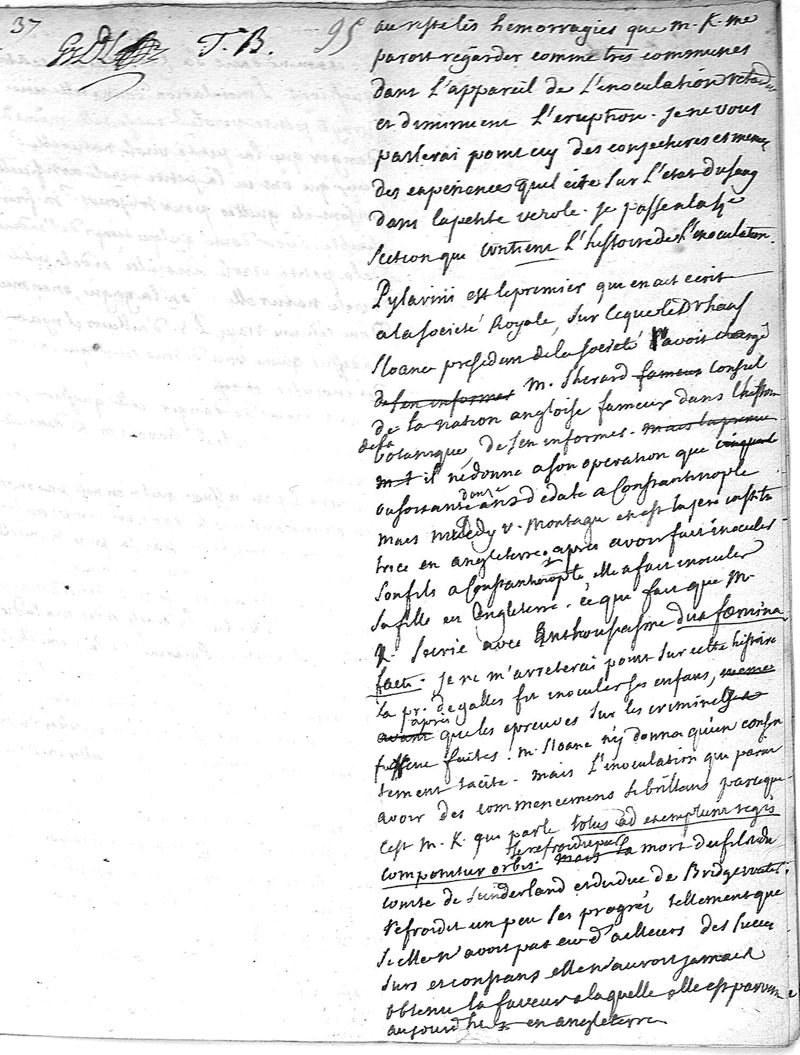 37
T. B. 95
au reste les hemorragies que m. K. me
paroit regarder comme très communes
dans l'appareil de l'inoculation retard
et diminuent l'eruption. je ne vous
parlerai point icy des conjectures et meme
des experiences quil cite sur l'etat du sang
dans la petite verole. je passe a la
section qui contient l'histoire de l'inoculation.
Pylarini est le premier qui en ait ecrit
a la societé Royale, sur lequel le Dr hans
sloane president de la societé avoit chargé
de s'en informer m. Sherard fameux consul
de la nation angloise fameux dans l'histoire
de la botanique, de s'en informer. mais la preuve
il ne donne a son operation que cinquante
ou soixante ans de date a Constantinople
mais milady v. Montagu en est la 1ere institu
trice en angleterre. apres avoir fait inoculer
son fils a Constantinople elle a fait inoculer
sa fille en Engleterre. ce qui fait que M.
K. s'ecrie avec Enthousiasme dux foemina
facti. je ne m'arreterai point sur cette histoire
la pr. de galles fit inoculer ses enfans, memes
avant après que les epreuves sur les criminels
fussent faites. m. Sloane n'y donna qu'un consen
tement tacite. mais l'inoculation qui parut
avoir des commencemens si brillans parceque
c'est m. K. qui parle totus ad exemplum regis
componitur orbis. mais la mort du fils du
comte de Sunderland et du duc de Bridgewater,
refroidit un peu ses progrès tellement que
si elle n'avoit pas eu d'ailleurs des succes
surs et constans elle n'auroit jamais
obtenu la faveur a laquelle elle est parvenue
aujourdhui en angleterre